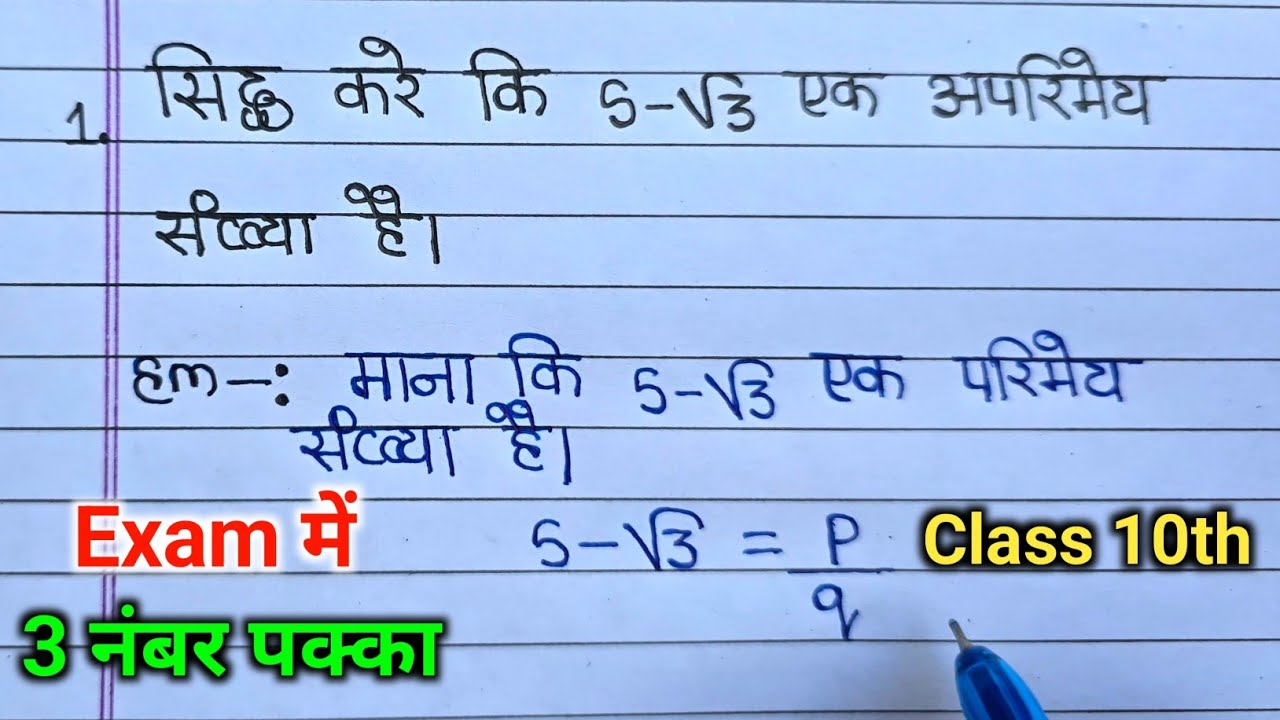 1. सिद्ध करे कि 5-√3 एक अपरिमेय
संख्या है।
हल-: माना कि 5-√3 एक परिमेय
संख्या है।
5-√3 = P/q
Exam में
Class 10th
3 नंबर पक्का